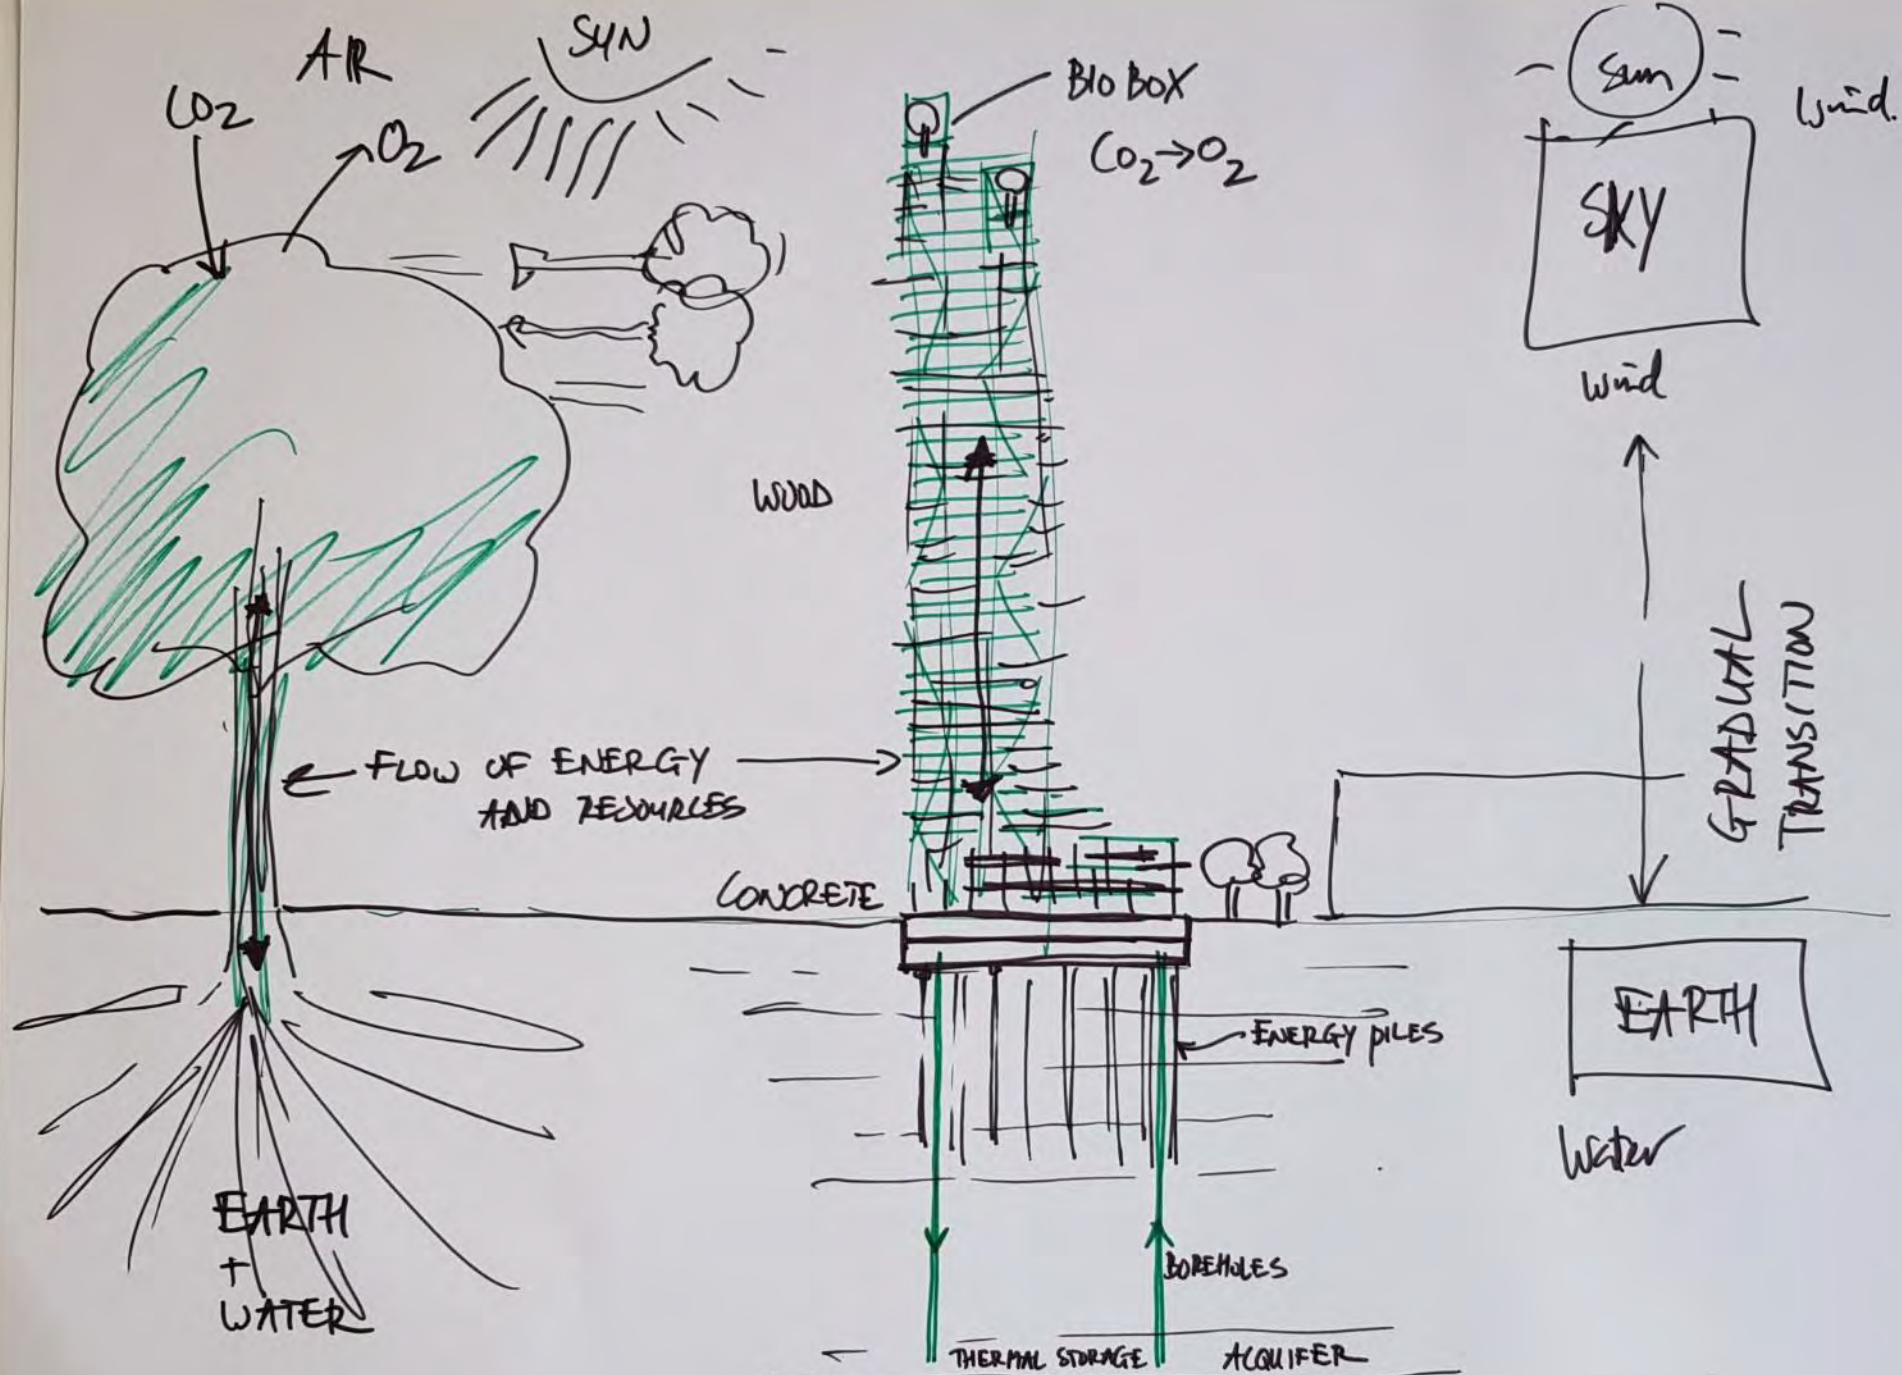 AIR
SUN
CO2
O2
BIO BOX
CO2→O2
Sun
Wind.
SKY
Wind
WOOD
FLOW OF ENERGY
AND RESOURCES
GRADUAL
TRANSITION
CONCRETE
EARTH
ENERGY PILES
Water
EARTH
+
WATER
BOREHOLES
THERMAL STORAGE
ACQUIFER